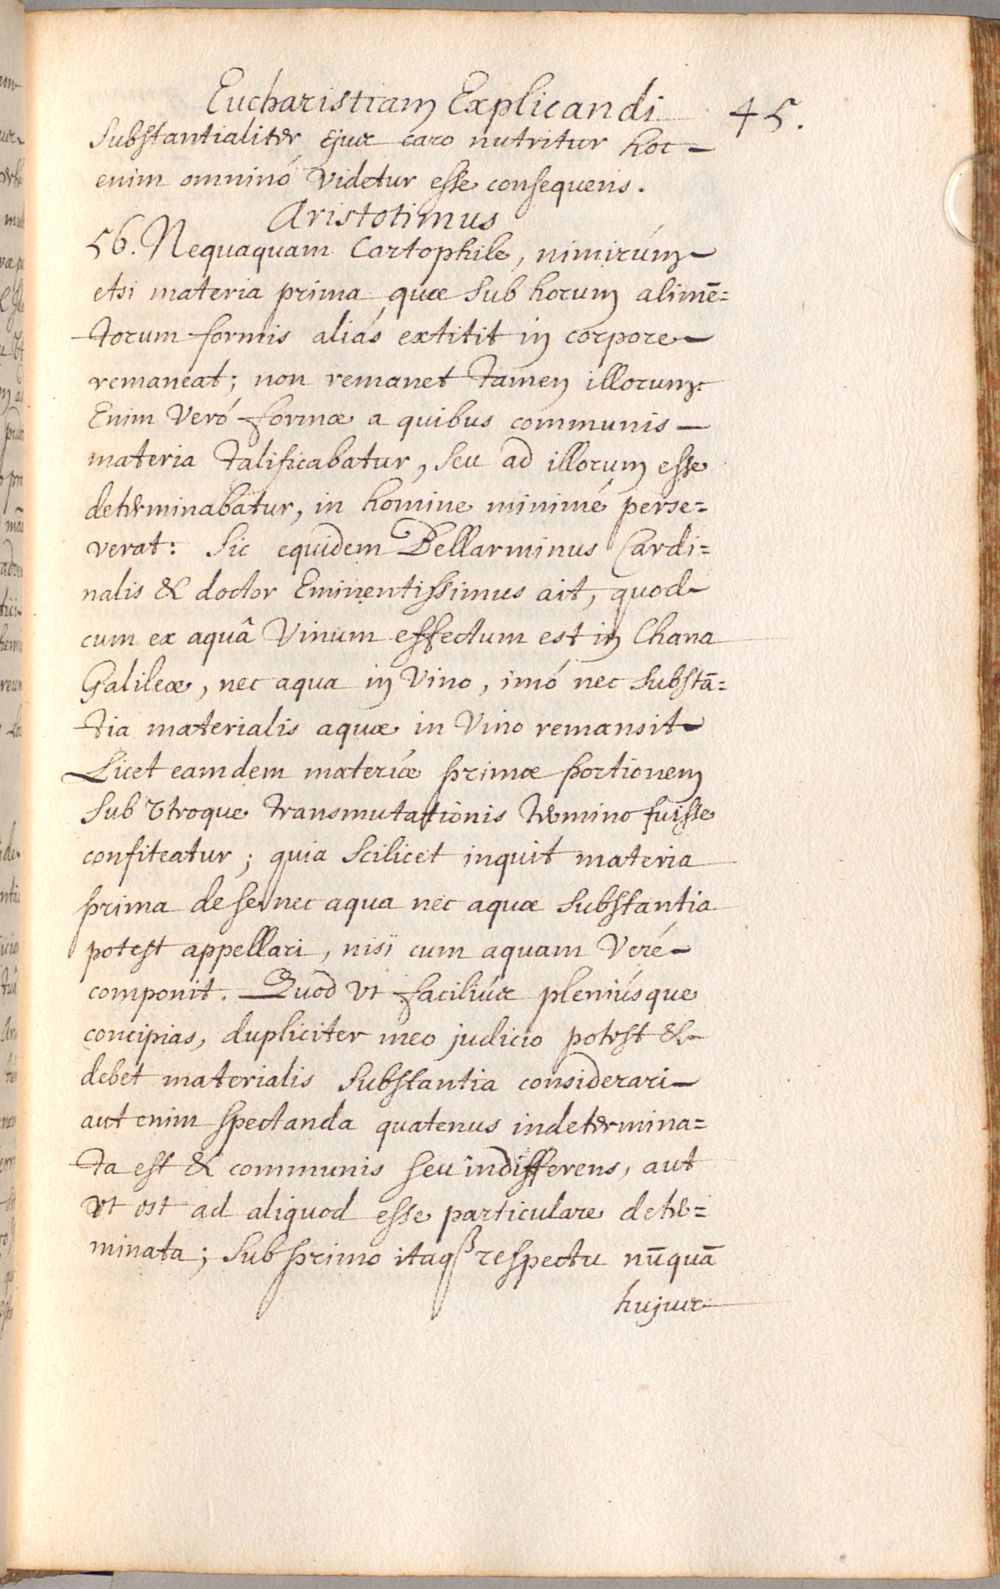 Eucharistiam Explicandi 45.
Substantialiter ejus caro nutritur hoc
enim omninó videtur esse consequens.
Aristotimus
56. Nequaquam Cartophile, nimirúm
etsi materia prima quæ sub horum alimē=
torum formis aliás extitit in corpore
remaneat; non remanet tamen illorum
Enim veró formæ a quibus communis
materia talificabatur, seu ad illorum esse
determinabatur, in homine minimé perse=
verat: Sic equidem Bellarminus Cardi=
nalis & doctor Eminentissimus ait, quod
cum ex aquâ Vinum effectum est in Chana
Galileæ, nec aqua in Vino, imó nec substā=
tia materialis aquæ in Vino remansit
Licet eamdem materiæ primæ portionem
sub utroque transmutationis termino fuisse
confiteatur; quia scilicet inquit materia
prima de se nec aqua nec aquæ substantia
potest appellari, nisi cum aquam veré
componit. Quod ut faciliús pleniúsque
concipias, dupliciter meo judicio potest &
debet materialis substantia considerari
aut enim spectanda quatenus indetermina=
ta est & communis seu indifferens, aut
ut est ad aliquod esse particulare deter=
minata; Sub primo itaqꝫ respectu nūquā
hujus